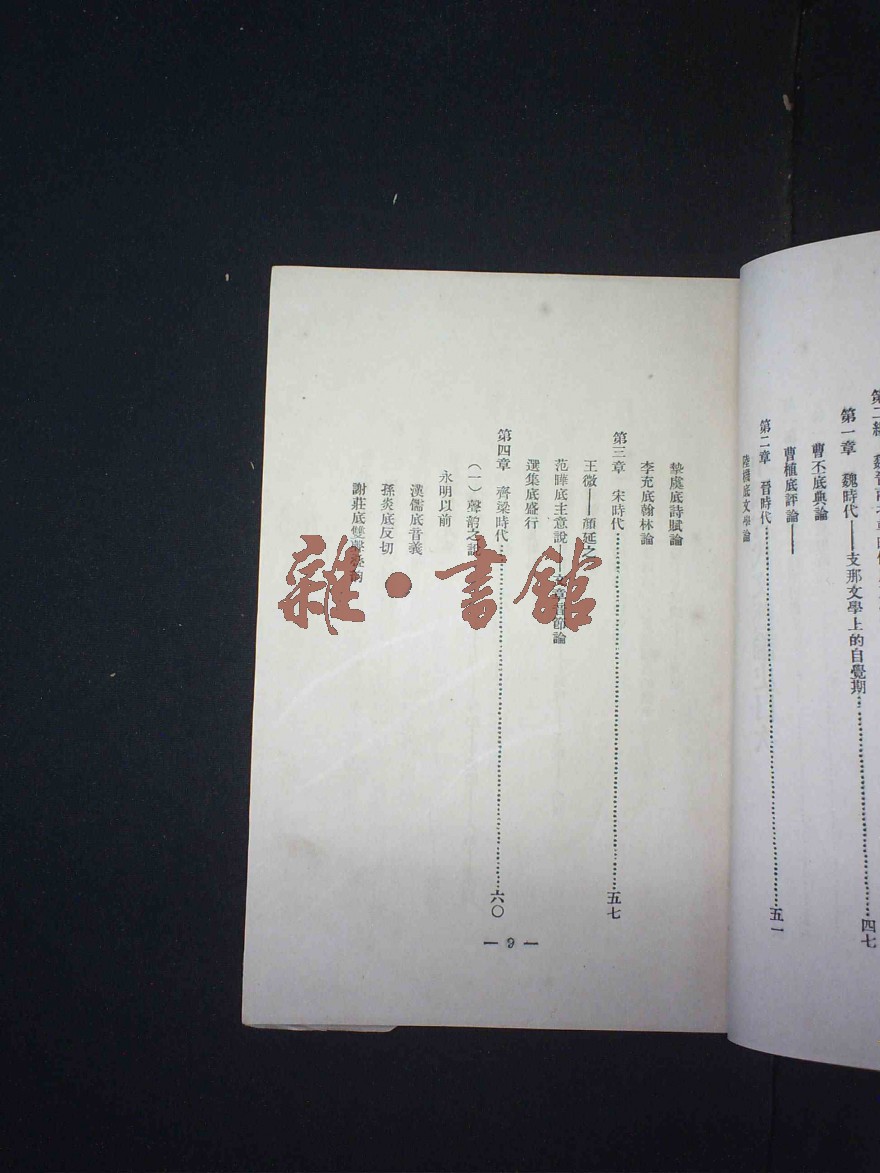 第一章 魏時代——支那文學上的自覺期……四七
曹丕底典論
曹植底評論——
第二章 晉時代……五一
陸機底文學論
摯虞底詩賦論
李充底翰林論
第三章 宋時代……五七
王微——顏延之
范曄底主意說——文章音節論
選集底盛行
第四章 齊梁時代……六〇
（一）聲韵之說
永明以前
漢儒底音義
孫炎底反切
謝莊底雙聲
— 9 —
雜·書館